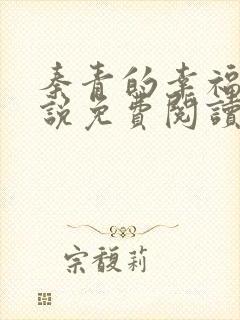 秦青的幸福
說免費閱讀
宗馥莉